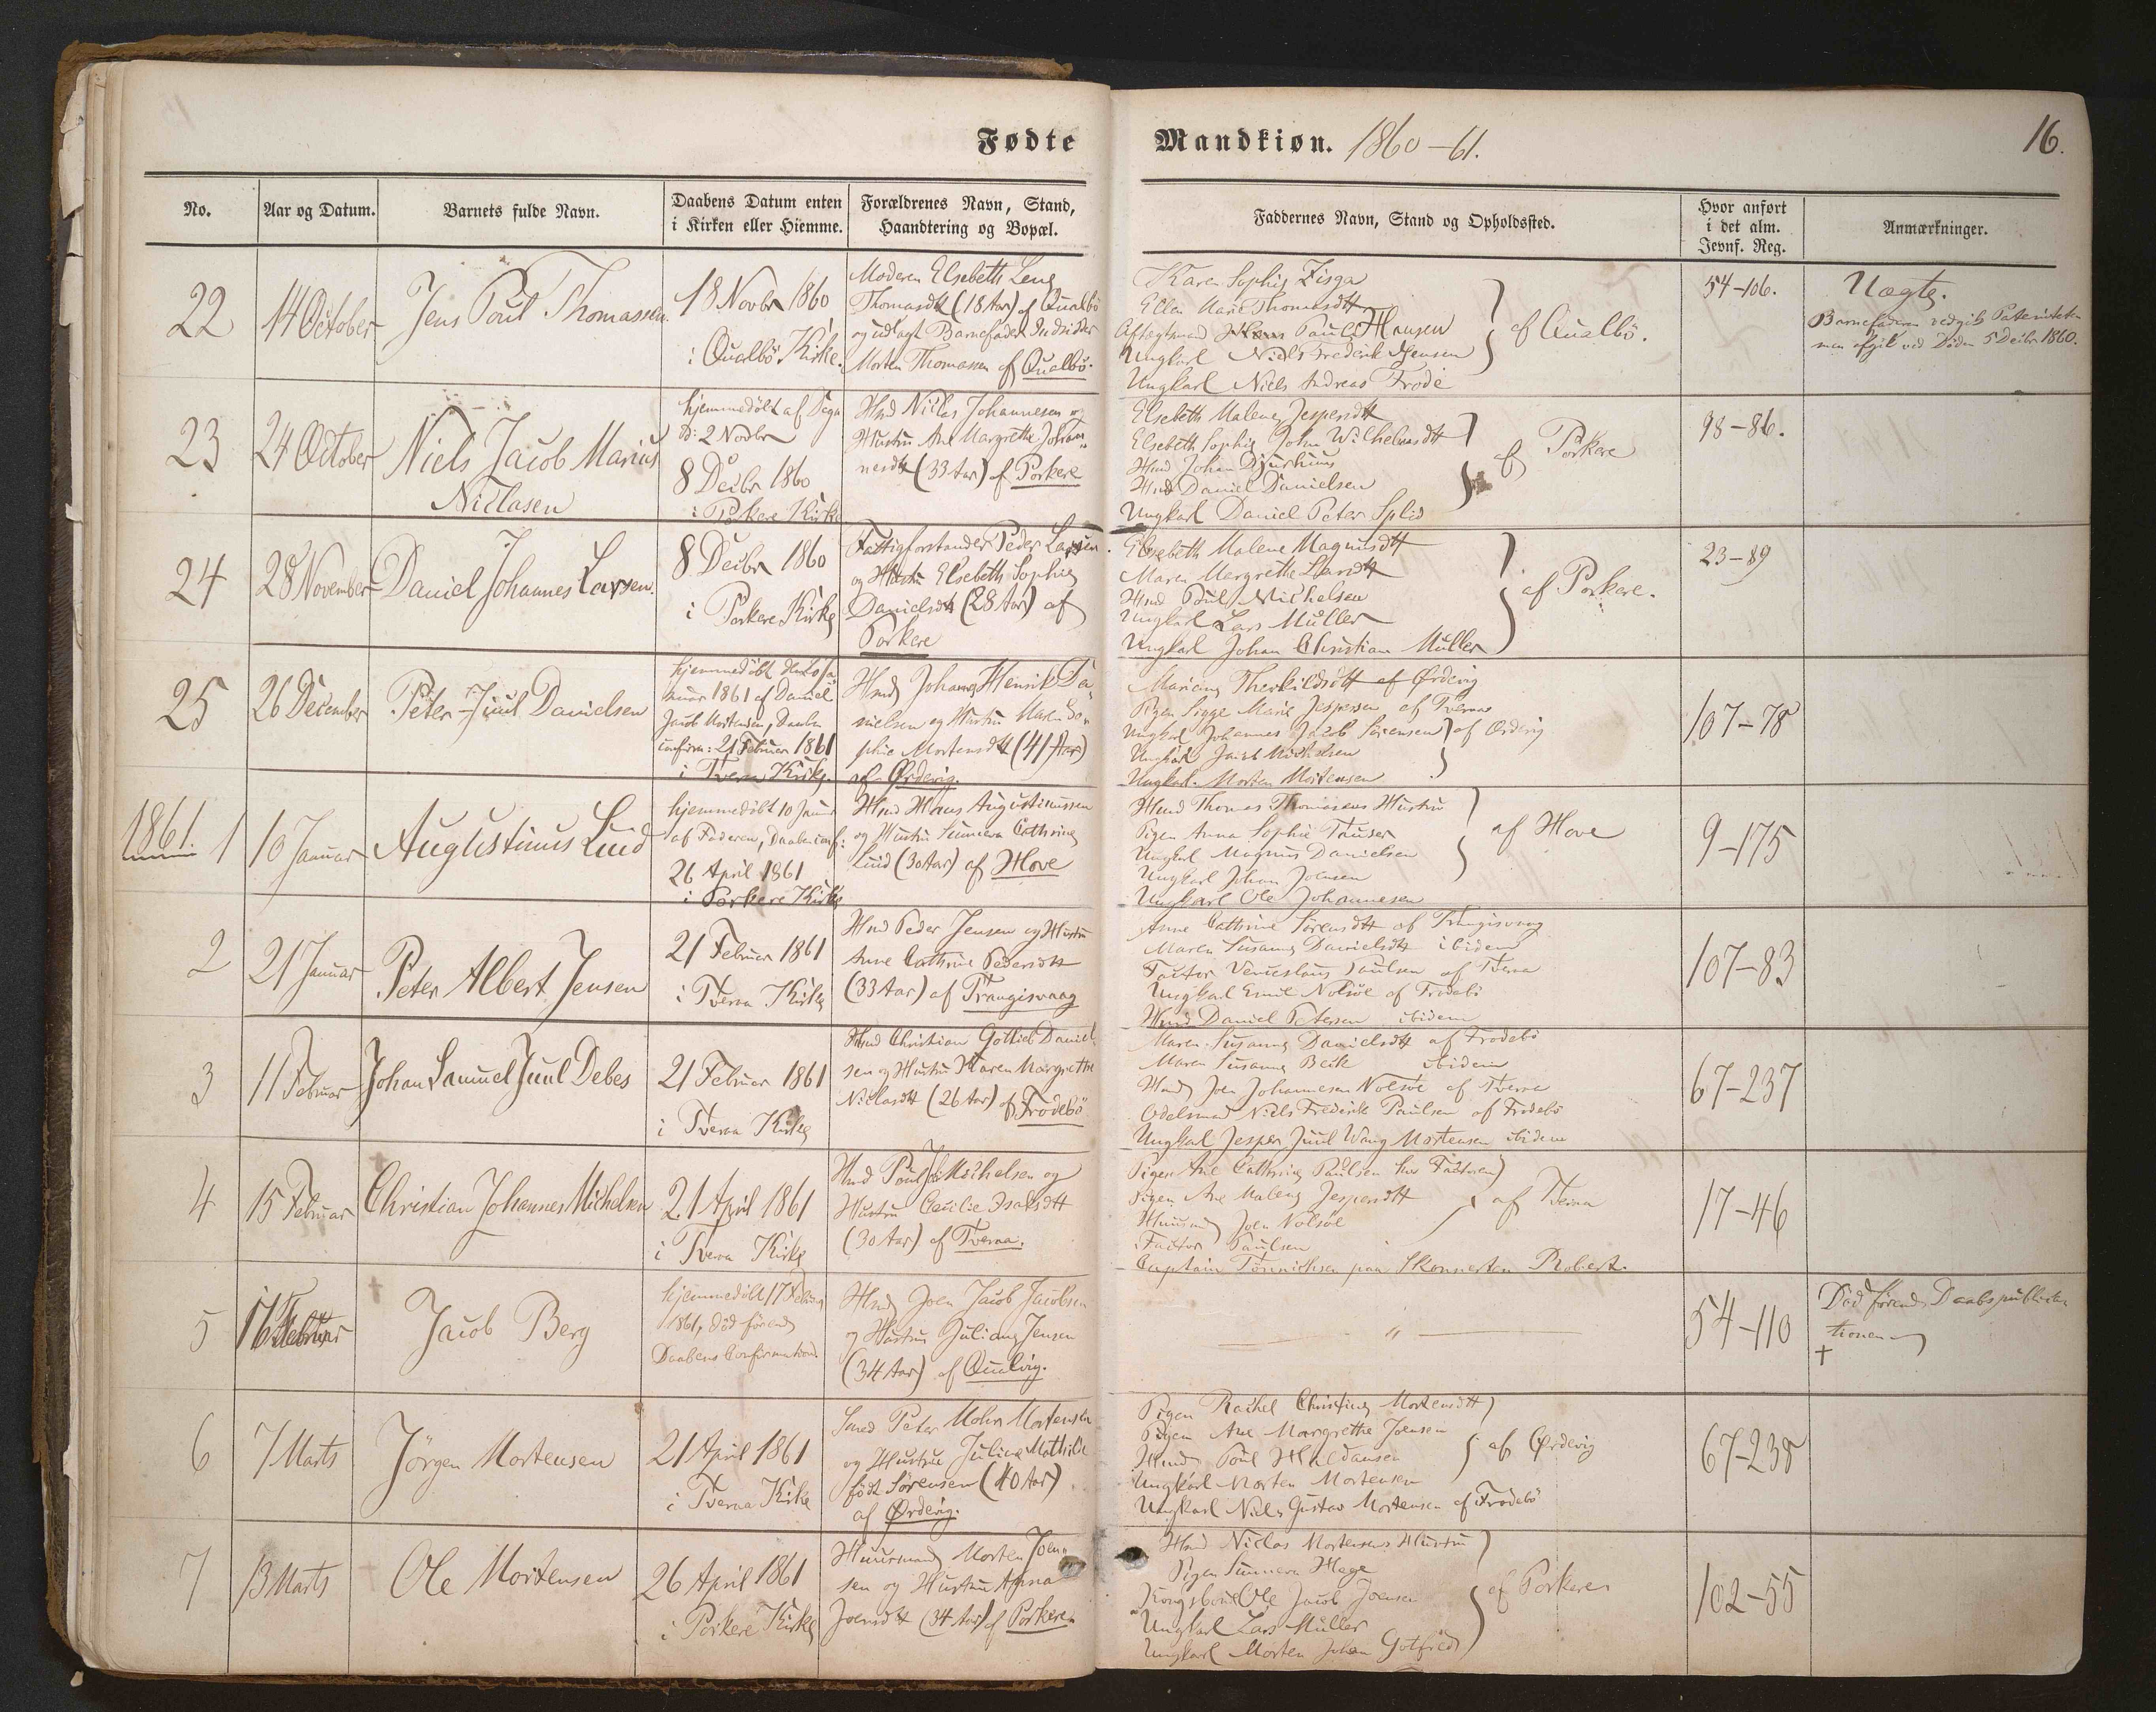 Fødte
Mandkiøn. 1860-61.
16.
No.
Aar og Datum.
Barnets fulde Navn.
Daabens Datum enten
i Kirken eller Hiemme.
Forældrenes Navn, Stand,
Haandtering og Bopæl.
Faddernes Navn, Stand og Opholdssted.
Hvor anført
i det alm.
Jevnf. Reg.
Anmærkninger.
22
14 October
Jens Poul Thomassen.
18 Novbr 1860
i Qualbö Kirke.
Moderen Elsebeth Lene
Thomasdtt (18 Aar) af Qualbö
og udlagt Barnefader Indsidder
Morten Thomassen af Qualbö.
Karen Sophie Zisga
Ellen Marie Thomasdtt
Aftægtsmand Poul Hansen
Ungkarl Niels Frederik Jensen
Ungkarl Niels Andreas Frode
af Qualbö.
54-106.
Uægte.
Barnefaderen vedgik Paterniteten
men afgik ved Döden 5 Decbr 1860.
23
24 October
Niels Jacob Marius
Niclasen
hjemmedöbt af Degn
d: 2 Novbr
8 Decbr 1860
i Porkere Kirke
Hmd Niclas Johannesen og
Hustru Ane Margrethe Johan-
nesdtt (33 Aar) af Porkere
Elsebeth Malene Jespersdtt
Elsebeth Sophie John Wilhelmsdtt
Hmd Johan Djurhuus
Hmd Daniel Danielsen
Ungkarl Daniel Peter Splid
af Porkere
98-86.
24
28 November
Daniel Johannes Larsen.
8 Decbr 1860
i Porkere Kirke
Fattigforstander Peder Larsen
og Hustru Elsebeth Sophie
Danielsdtt (28 Aar) af
Porkere
Elsebeth Malene Magnusdtt
Maren Mergrethe Larsdtt
Hmd Poul Michelsen
Ungkarl Lars Müller
Ungkarl Johan Christian Müller
af Porkere.
23-89
25
26 December
Peter Juul Danielsen
hjemmedöbt den Ja-
nuar 1861 af Daniel
Jacob Mortensen, Daaben
confirm: 21 Februar 1861
i Tveraa Kirke.
Hmd Johannes Henrik Da-
nielsen og Hustru Maren So-
phie Mortensdtt (41 Aar)
af Ørdevig.
Mariane Therkildsdtt af Ørdevig
Pigen Sigge Marie Jespersen af Tveraa
Ungkarl Johannes Jacob Sörensen af Ørdevig
Ungkarl Jacob Michelsen
Ungkarl Morten Mortensen
107-78
1861. 1
10 Januar
Augustinus Lüid
hjemmedöbt 10 Januar
af Faderen, Daaben conf:
26 April 1861
i Porkere Kirke
Hmd Hans Augustinussen
og Hustru Sunneva Cathrine
Lüid (30 Aar) af Hove
Hmd Thomas Thomasens Hustru
Pigen Anna Sophie Tausen
Ungkarl Magnus Danielsen
Ungkarl Johan Joensen
Ungkarl Ole Johannesen
af Hove
9-175
2
21 Januar
Peter Albert Jensen
21 Februar 1861
i Tveraa Kirke
Hmd Peder Jensen og Hustru
Anne Cathrine Pedersdtt
(33 Aar) af Trangisvaag
Anne Cathrine Sörensdtt af Trangisvaag
Maren Susanne Danielsdtt ibidem
Factor Venceslaus Paulsen af Tveraa
Ungkarl Emil Nolsöe af Frodebö
Hmd Daniel Petersen ibidem
107-83
3
11 Februar
Johan Samuel Juul Debes
21 Februar 1861
i Tveraa Kirke
Hmd Christian Gotlieb Daniel-
sen og Hustru Karen Margrethe
Niclasdtt (26 Aar) af Frodebö
Maren Susanne Danielsdtt af Frodebö
Maren Susanne Beck ibidem
Hmd Joen Johannesen Nolsöe af Tveraa
Odelsmand Niels Frederik Paulsen af Frodebö
Ungkarl Jesper Juul Wang Mortensen ibidem
67-237
4
15 Februar
Christian Johannes Michelsen
21 April 1861
i Tveraa Kirke
Hmd Poul Joh: Michelsen og
Hustru Cecilie Isaksdtt
(30 Aar) af Tveraa.
Pigen Ane Cathrine Paulsen hos Factoren
Pigen Ane Malene Jespersdtt
Huusmand Joen Nolsöe
Factor Paulsen
Captain Tönnichsen paa Skonnerten Robert.
af Tveraa
17-46
5
16 Februar
Jacob Berg
hjemmedöbt 17 Februar
1861, död förend
Daabens Confirmation.
Hmd Joen Jacob Jacobsen
og Hustru Juliane Jensen
(34 Aar) af Qualvig.
"
54-110
Död förend Daabspublica-
tionen
+
6
7 Marts
Jörgen Mortensen
21 April 1861
i Tveraa Kirke
Smed Peter Mohr Mortensen
og Hustru Julie Mathilde
född Sörensen (40 Aar)
af Ørdevig.
Pigen Rachel Christine Mortensdtt
Pigen Ane Margrethe Joensen
Hmd Poul Haldansen
Ungkarl Morten Mortensen
Ungkarl Niels Gustav Mortensen af Frodebö
af Ørdevig
67-238
7
13 Marts
Ole Mortensen
26 April 1861
i Porkere Kirke
Huusmand Morten Joen-
sen og Hustru Anna
Joensdtt (34 Aar) af Porkere
Hmd Niclas Mortensens Hustru
Pigen Sunneva Hage
Kongsbonde Ole Jacob Joensen
Ungkarl Lars Müller
Ungkarl Morten Johan Gotfred
af Porkere
102-55